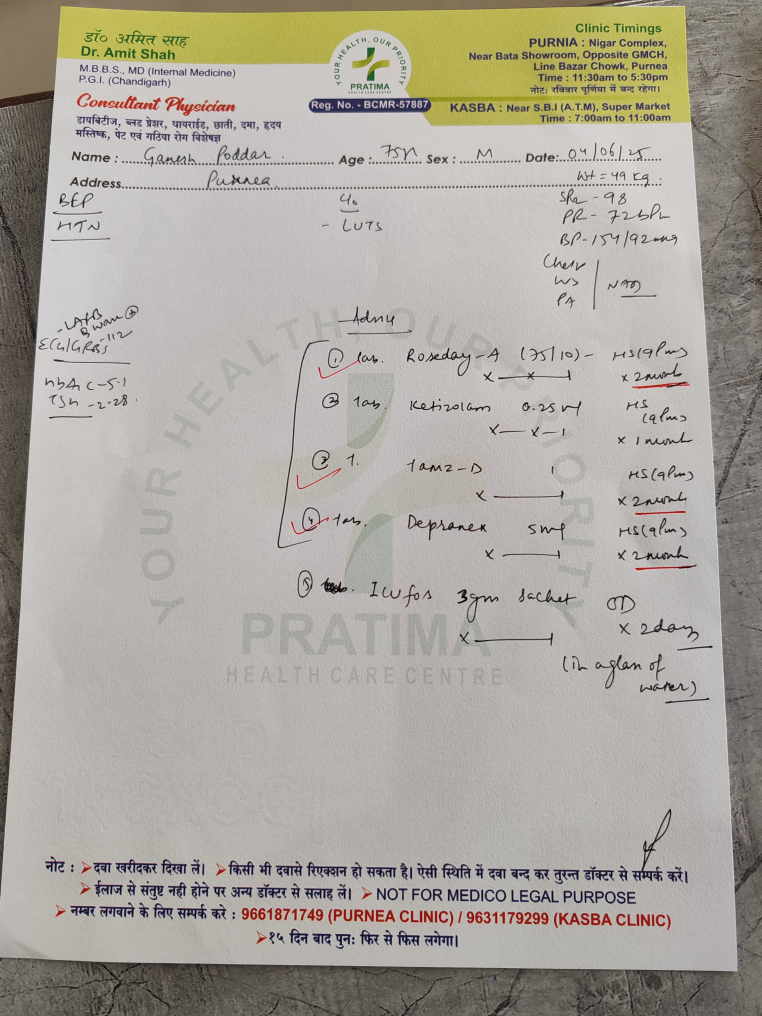 डॉ० अमित साह
Dr. Amit Shah
M.B.B.S., MD (Internal Medicine)
P.G.I. (Chandigarh)
Consultant Physician
डायबिटीज, ब्लड प्रेशर, थायराईड, छाती, दमा, हृदय
मस्तिष्क, पेट एवं गठिया रोग विशेषज्ञ
YOUR HEALTH, OUR PRIORITY
PRATIMA
HEALTH CARE CENTRE
Reg. No. - BCMR-57887
Clinic Timings
PURNIA : Nigar Complex,
Near Bata Showroom, Opposite GMCH,
Line Bazar Chowk, Purnea
Time : 11:30am to 5:30pm
नोट: रविवार पूर्णिया में बन्द रहेगा।
KASBA : Near S.B.I (A.T.M), Super Market
Time : 7:00am to 11:00am
Name : Ganesh Poddar Age : 75 Sex : M Date: 04/06/25
Address Purnea Wt = 49 kg
BEP
HTN
c/o
- LUTS
- 98
PR - 72
BP - 154/92
Chest
PA
NAD
- LAFB
ECG/GRBS - 112
HbA1c - 5.1
TSH - 2.28
Adv
1 Tab. Roseday-A (75/10) - HS (9pm)
x 2 month
2 Tab. Ketizolam 0.25 mg HS (9pm)
x 1 month
3 T. Tamz-D 1 HS (9pm)
x 2 month
4 Tab. Depranex 5 mg HS (9pm)
x 2 month
5 3gm sachet OD
x 2 days
(in a glass of
water)
YOUR HEALTH, OUR PRIORITY
PRATIMA
HEALTH CARE CENTRE
नोट : ➤ दवा खरीदकर दिखा लें। ➤ किसी भी दवासे रिएक्शन हो सकता है। ऐसी स्थिति में दवा बन्द कर तुरन्त डॉक्टर से सम्पर्क करें।
➤ ईलाज से संतुष्ट नही होने पर अन्य डॉक्टर से सलाह लें। ➤ NOT FOR MEDICO LEGAL PURPOSE
➤ नम्बर लगवाने के लिए सम्पर्क करे : 9661871749 (PURNEA CLINIC) / 9631179299 (KASBA CLINIC)
➤ १५ दिन बाद पुन: फिर से फिस लगेगा।